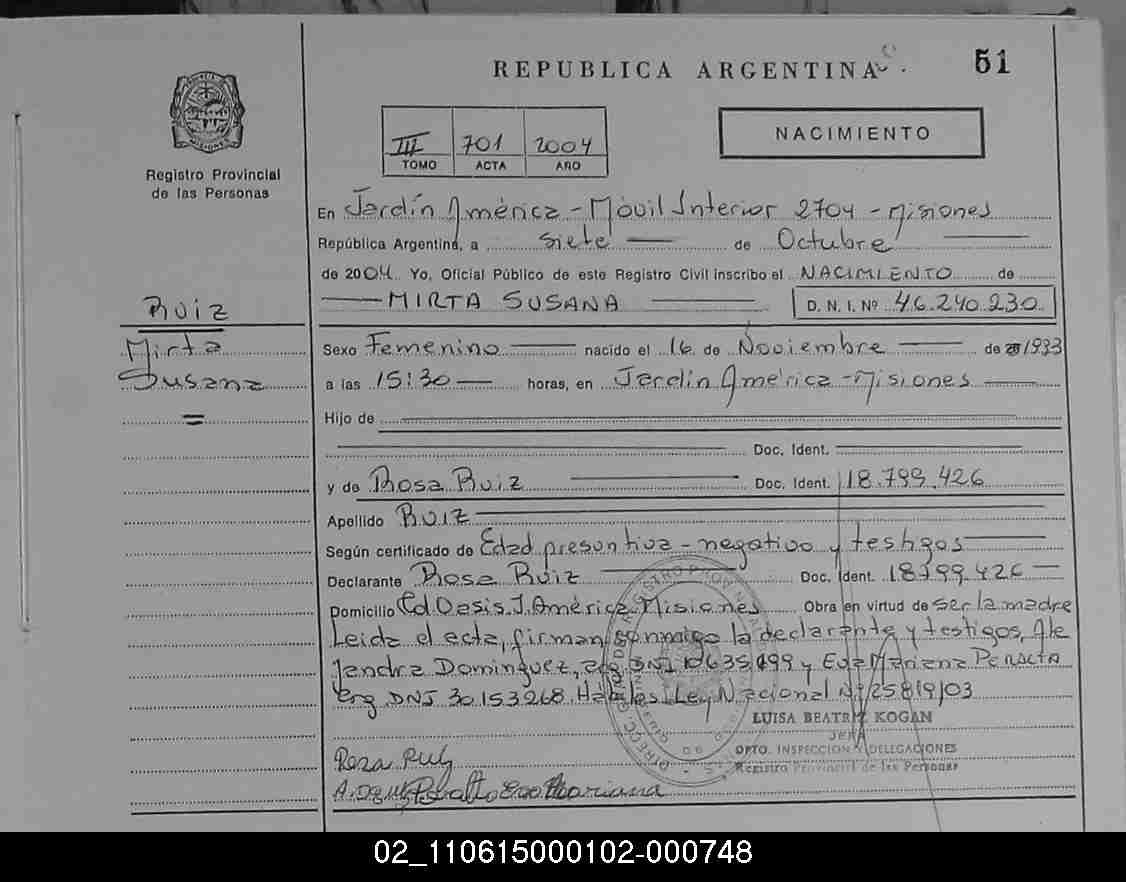 REPUBLICA ARGENTINA
51
III 701 2004
TOMO ACTA AÑO
NACIMIENTO
Registro Provincial
de las Personas
En Jardín América - Móvil Interior 2704 - Misiones
República Argentina, a siete de Octubre
de 2004 Yo, Oficial Público de este Registro Civil inscribo el NACIMIENTO de
MIRTA SUSANA D. N. I. Nº 46.240.230
Ruiz
Mirta
Susana
Sexo Femenino nacido el 16 de Noviembre de 1993
a las 15:30 horas, en Jardín América - Misiones
Hijo de
Doc. Ident.
y de Rosa Ruiz Doc. Ident. 18.799.426
Apellido RUIZ
Según certificado de Edad presuntiva - negativo y testigos
Declarante Rosa Ruiz Doc. Ident. 18799.426
Domicilio Oasis J. América Misiones Obra en virtud de ser la madre
Leida el acta, firman conmigo la declarante y testigos, Ale
jandra Dominguez, arg DNI y Eva Mariana Peralta
arg DNI 30.153.268. Ley Nacional Nº 25819/03
LUISA BEATRIZ KOGAN
JEFA
DPTO. INSPECCION Y DELEGACIONES
Registro Provincial de las Personas
Rosa Ruiz
Peralta Eva Mariana
02_110615000102-000748